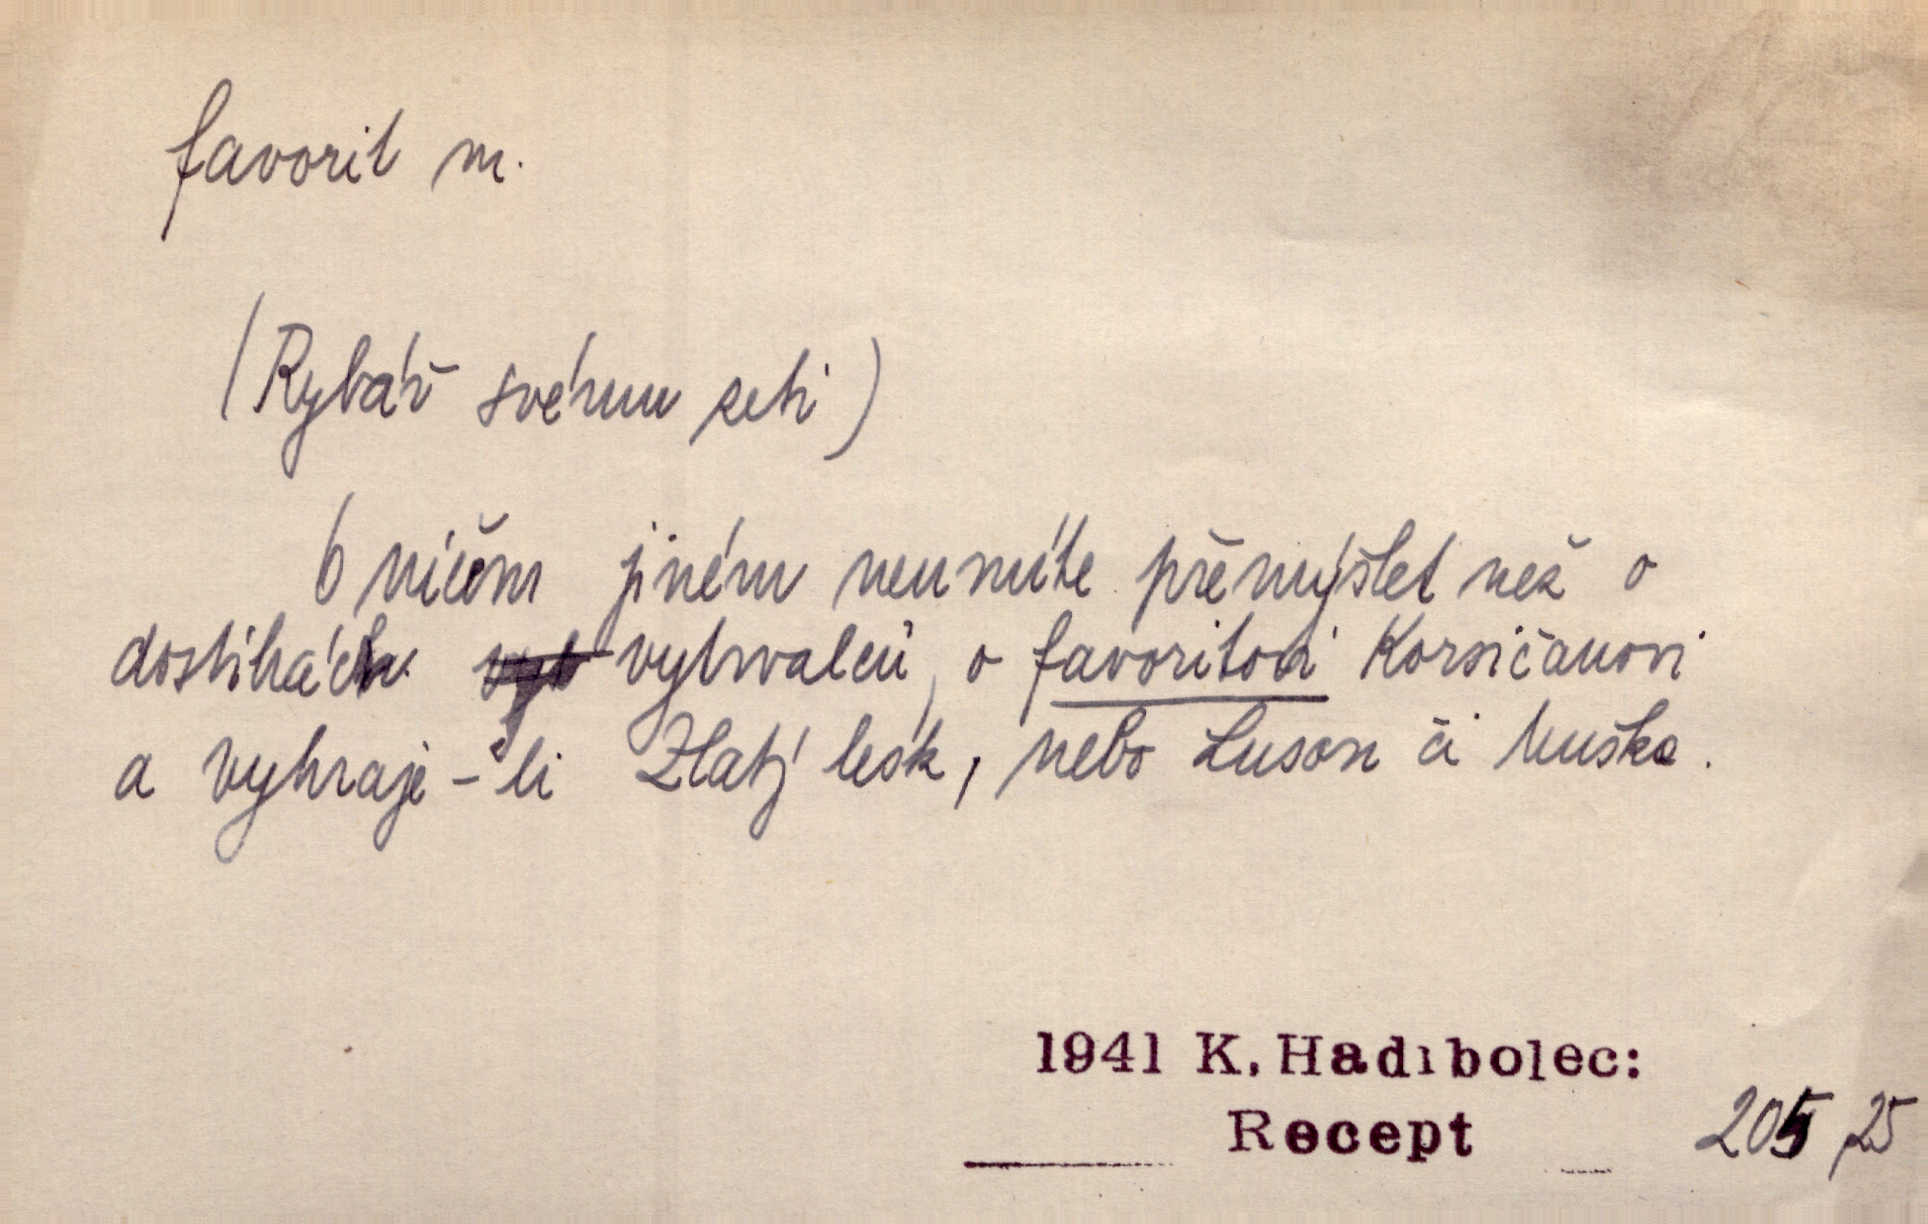 favorit m.
(Rybář svému zeti)
O ničem jiném neumíte přemýšlet než o
dostihách vytrvalců, o favoritovi Korsičanovi
a vyhraje-li Zlatý lesk, nebo Luson či Muška.
1941 K. Hadibolec:
Recept
205, 25